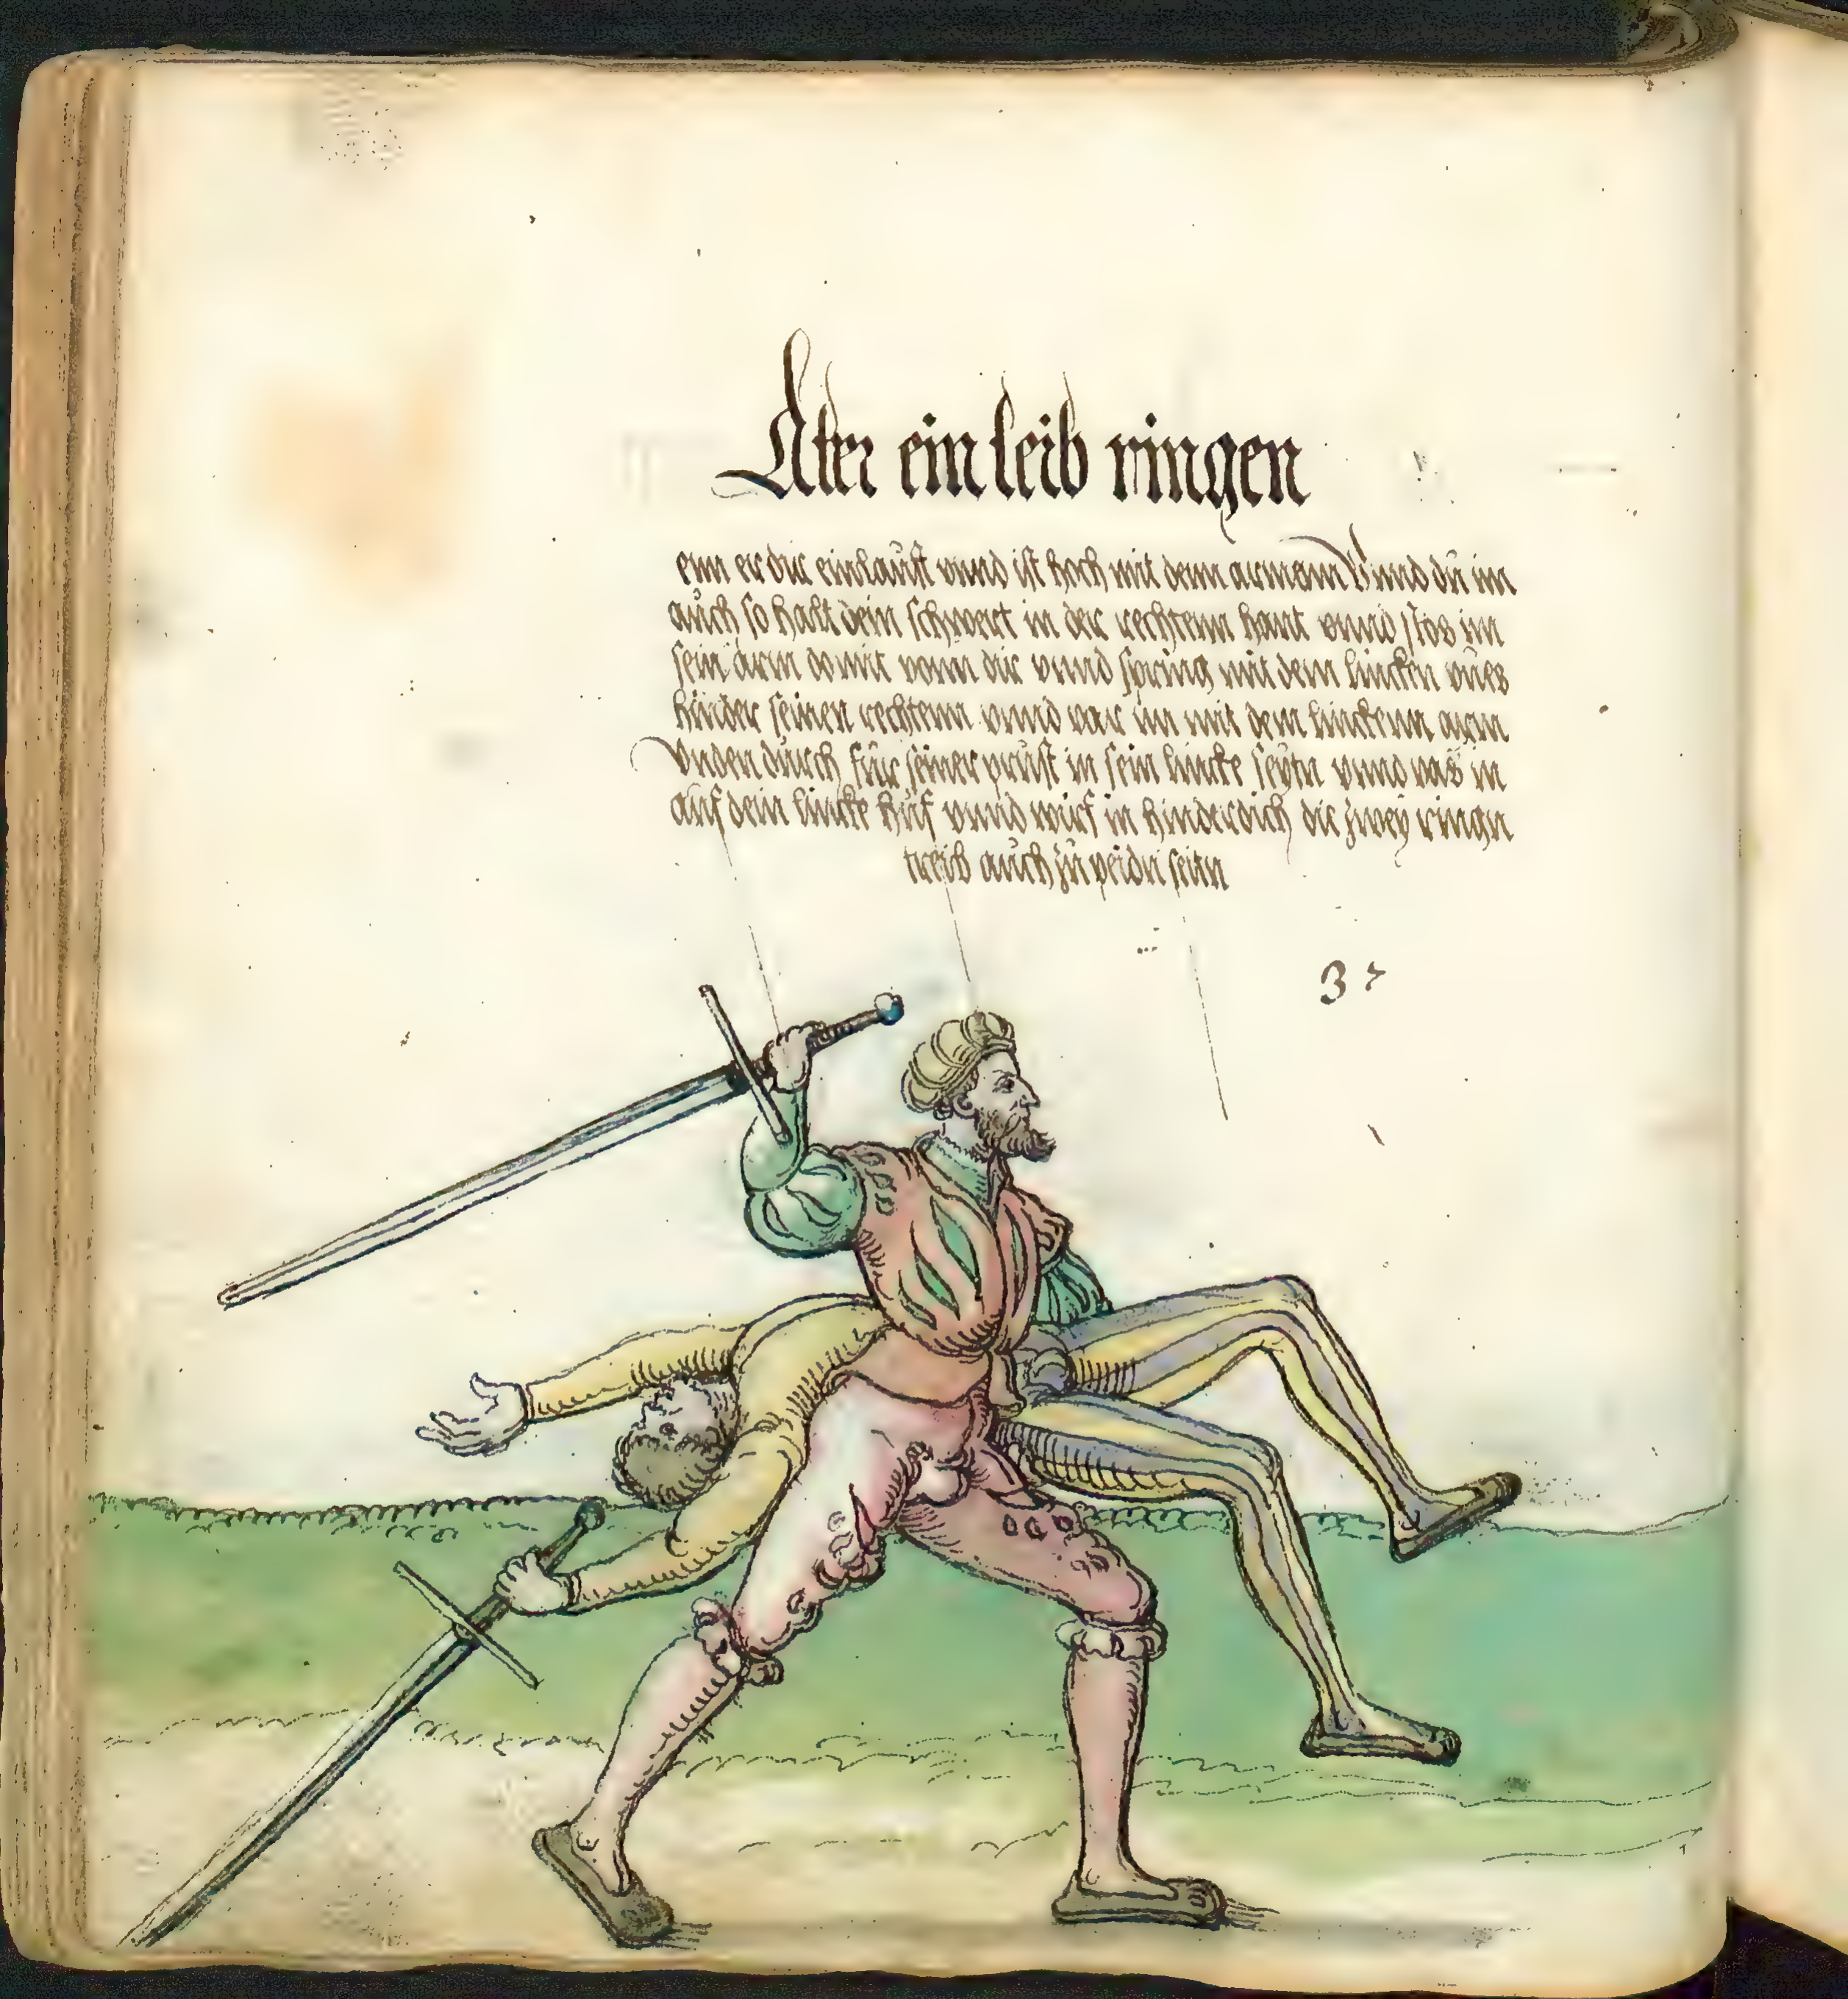 Aber ein leib ringen
enn er dir einlaüfft vnnd ist hoch mit denn armenn Vnnd dü im
aüch so halt dein schwert in der rechtenn hant vnnd stos im
sein arm domit vonn dir vnnd spring mit dem lincken vües
hinder seinen rechtenn vnnd var im mit dem linckenn arm
Vnden dürch für seiner prüst in sein lincke seytn vnnd vas in
auf dein lincke hüf vnnd wirf in hinderdich die zwey ringn
treib aüch zü peidn seitn
37